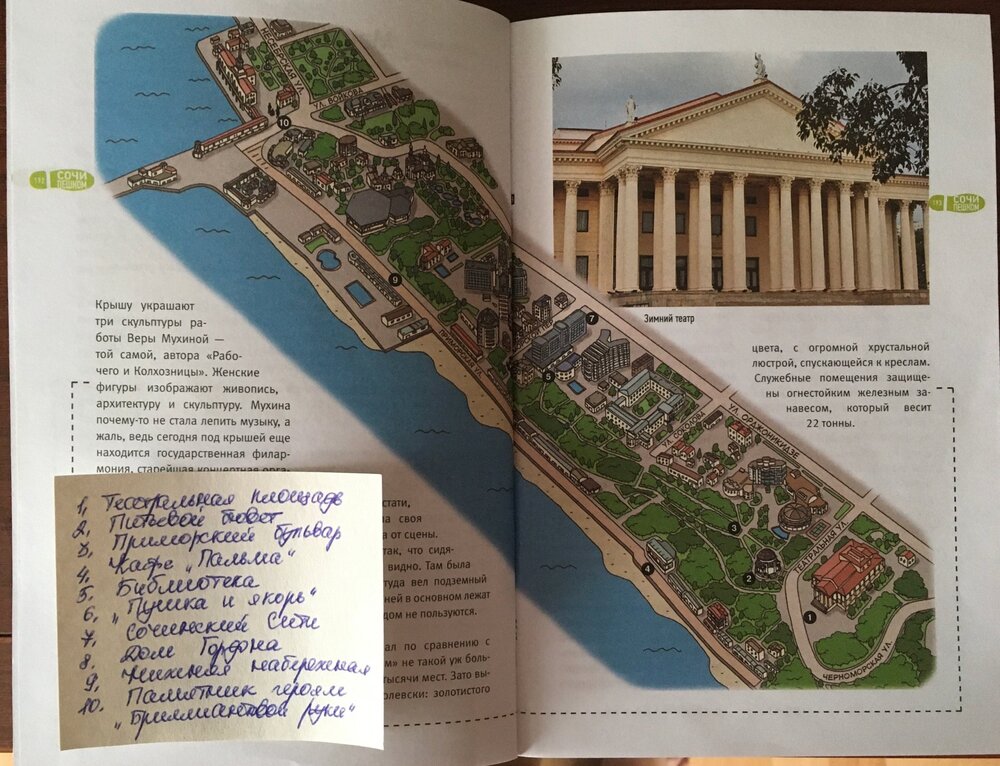 192 СОЧИ
ПЕШКОМ
Крышу украшают
три скульптуры ра-
боты Веры Мухиной —
той самой, автора «Рабо-
чего и Колхозницы». Женские
фигуры изображают живопись,
архитектуру и скульптуру. Мухина
почему-то не стала лепить музыку, а
жаль, ведь сегодня под крышей еще
находится государственная филар-
мония, старейшая концертная орга-
стати,
на своя
а от сцены.
так, что сидя-
видно. Там была
туда вел подземный
ней в основном лежат
дом не пользуются.
зал по сравнению с
м» не такой уж боль-
тысячи мест. Зато вы-
олевски: золотистого
1. Театральная площадь
2. Питьевой бювет
3. Приморский бульвар
4. Кафе „Пальма"
5. Библиотека
6. „Пушка и якорь"
7. „Сочинский Сити
8. Дом Гордона
9. Нижняя набережная
10. Памятник героям
„Бриллиантовой руки"
НЕСЕБРСКАЯ УЛ.
УЛ. ВОЙКОВА
10
9
ПРИМОРСКАЯ УЛ.
7
5
УЛ. СОКОЛОВА
УЛ. ОРДЖОНИКИДЗЕ
3
4
2
ТЕАТРАЛЬНАЯ УЛ.
1
ЧЕРНОМОРСКАЯ УЛ.
Зимний театр
193 СОЧИ
ПЕШКОМ
цвета, с огромной хрустальной
люстрой, спускающейся к креслам.
Служебные помещения защище-
ны огнестойким железным за-
навесом, который весит
22 тонны.